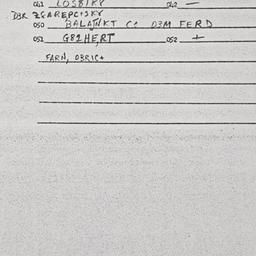 041 LOSBIKY 042 —
DBR ZGAREPCISKY
050 BALATNKT CC D3M FERD
051 G82HERT 052 +
FARN, OBRIC+